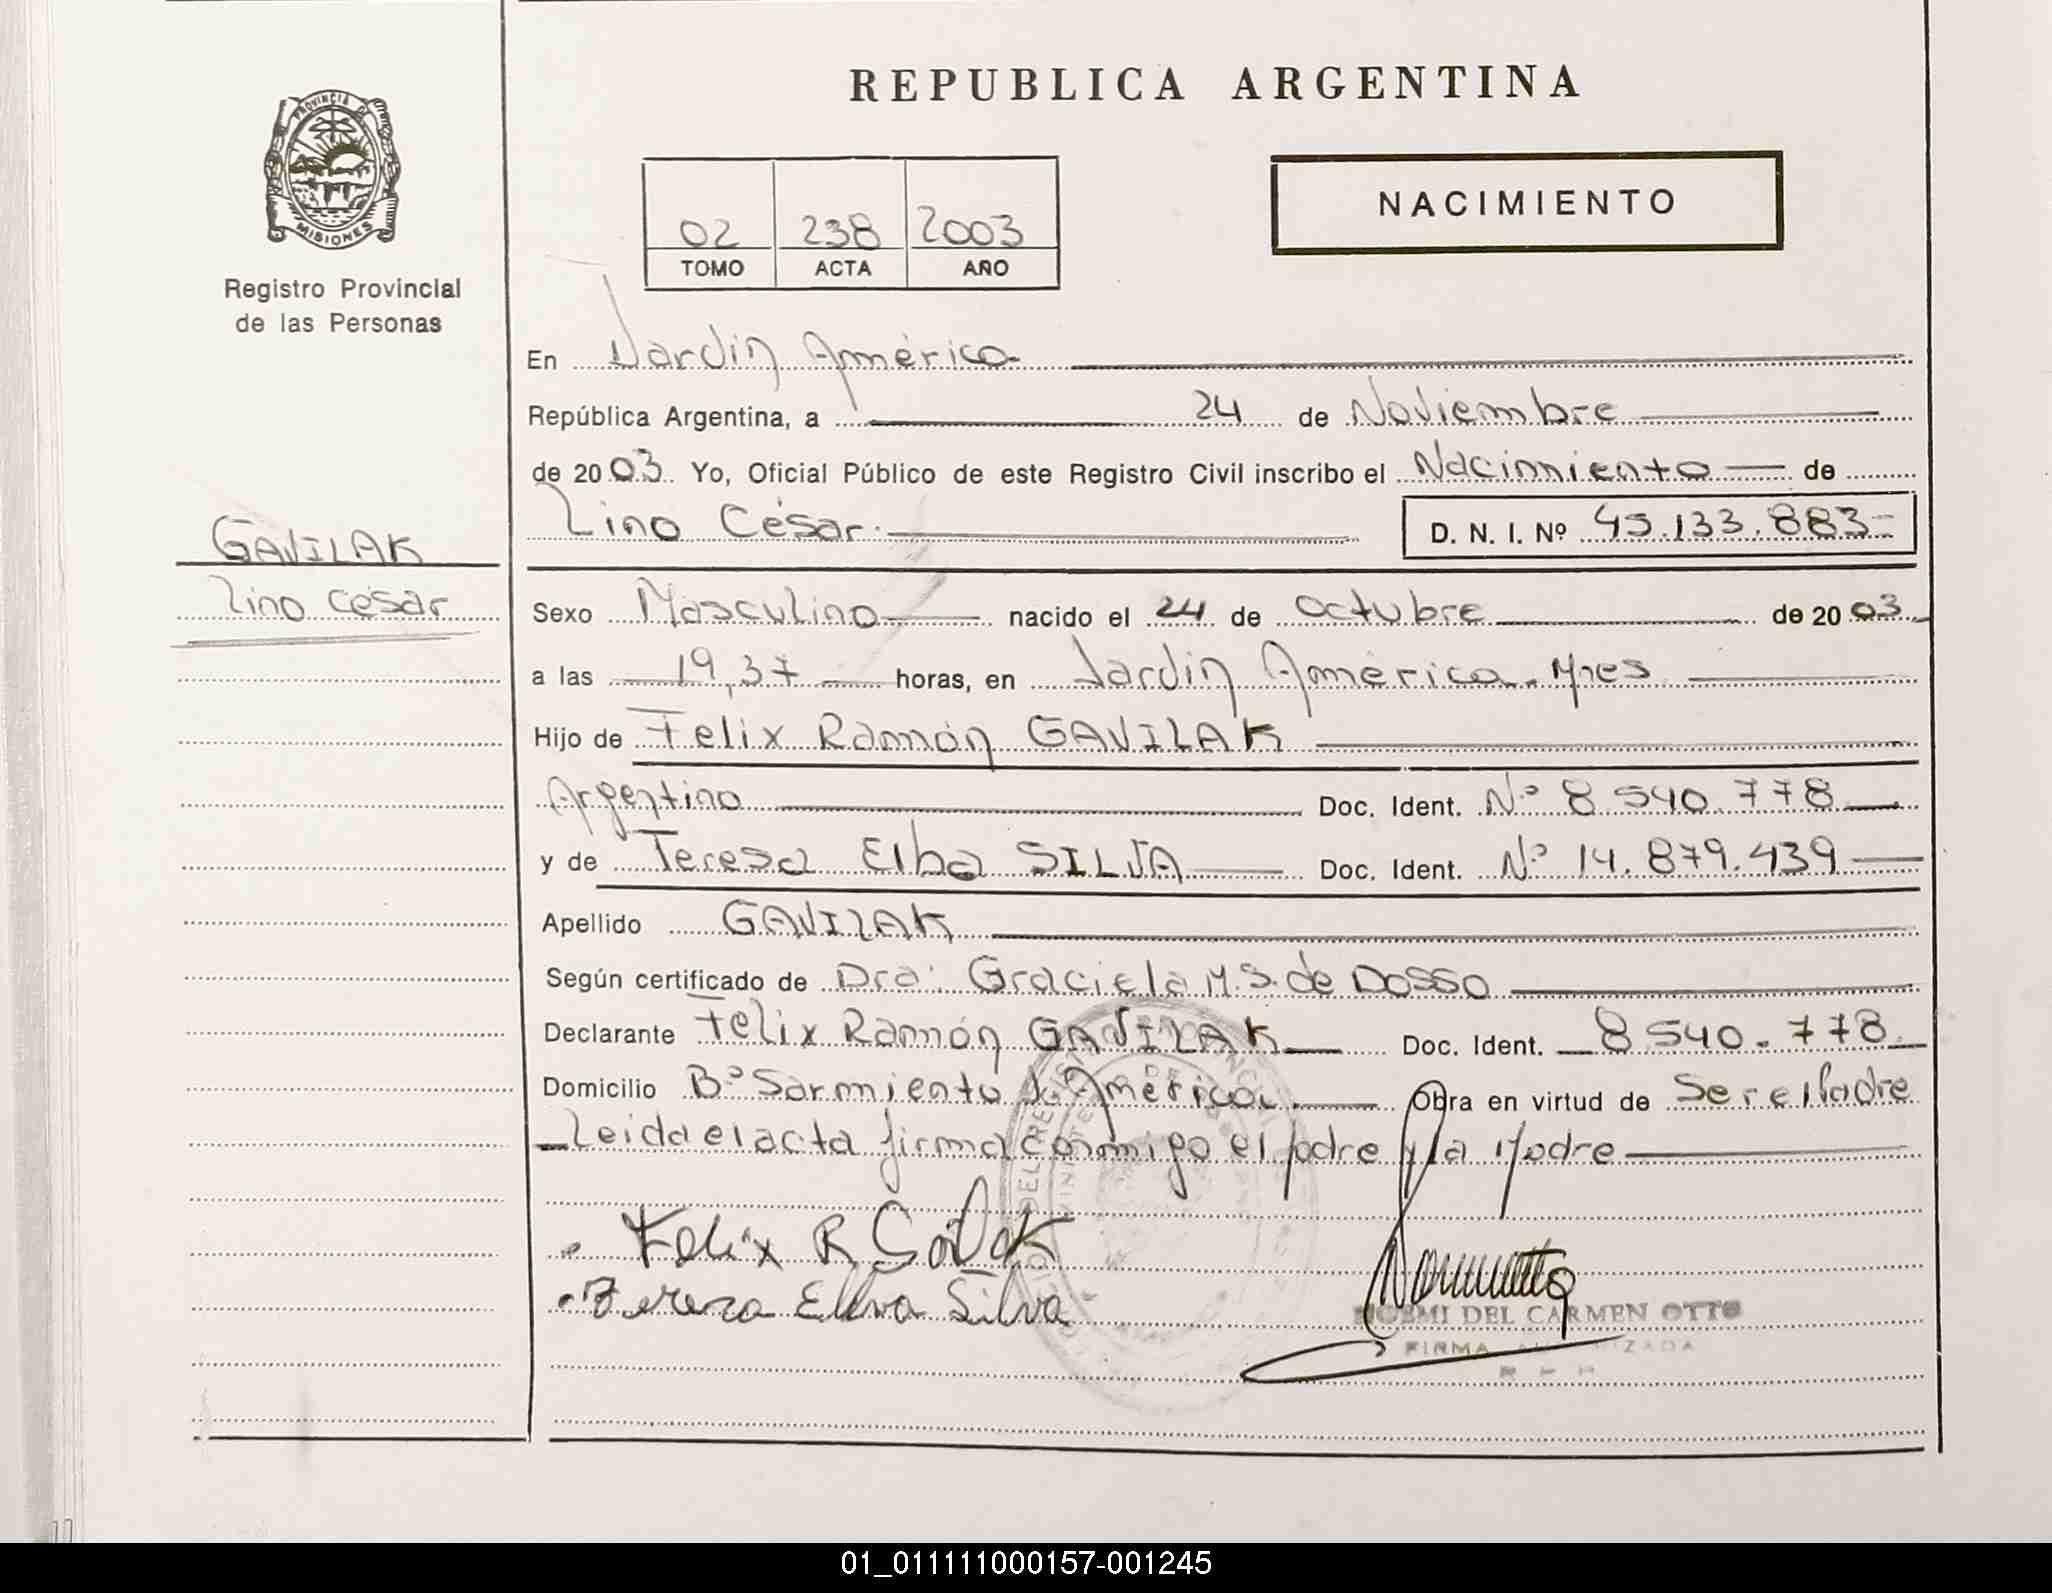 PROVINCIA DE
MISIONES
Registro Provincial
de las Personas
GAVILAK
Lino César
REPUBLICA ARGENTINA
NACIMIENTO
02 238 2003
TOMO ACTA AÑO
En Jardín América
República Argentina, a 24 de Noviembre
de 2003. Yo, Oficial Público de este Registro Civil inscribo el Nacimiento de
Lino César. D. N. I. Nº 45.133.883
Sexo Masculino nacido el 24 de Octubre de 2003
a las 19,37 horas, en Jardín América. Mnes
Hijo de Felix Ramón GAVILAK
Argentino Doc. Ident. Nº 8.540.778
y de Teresa Elba SILVA Doc. Ident. Nº 14.879.439
Apellido GAVILAK
Según certificado de Dra. Graciela M.S. de Dosso
Declarante Felix Ramón GAVILAK Doc. Ident. 8.540.778
Domicilio Bº Sarmiento J. América. Obra en virtud de Ser el Padre
Leida el acta firma conmigo el padre y la Madre
Felix R
Silva
NOEMI DEL CARMEN OTTO
FIRMA AUTORIZADA
01_011111000157-001245